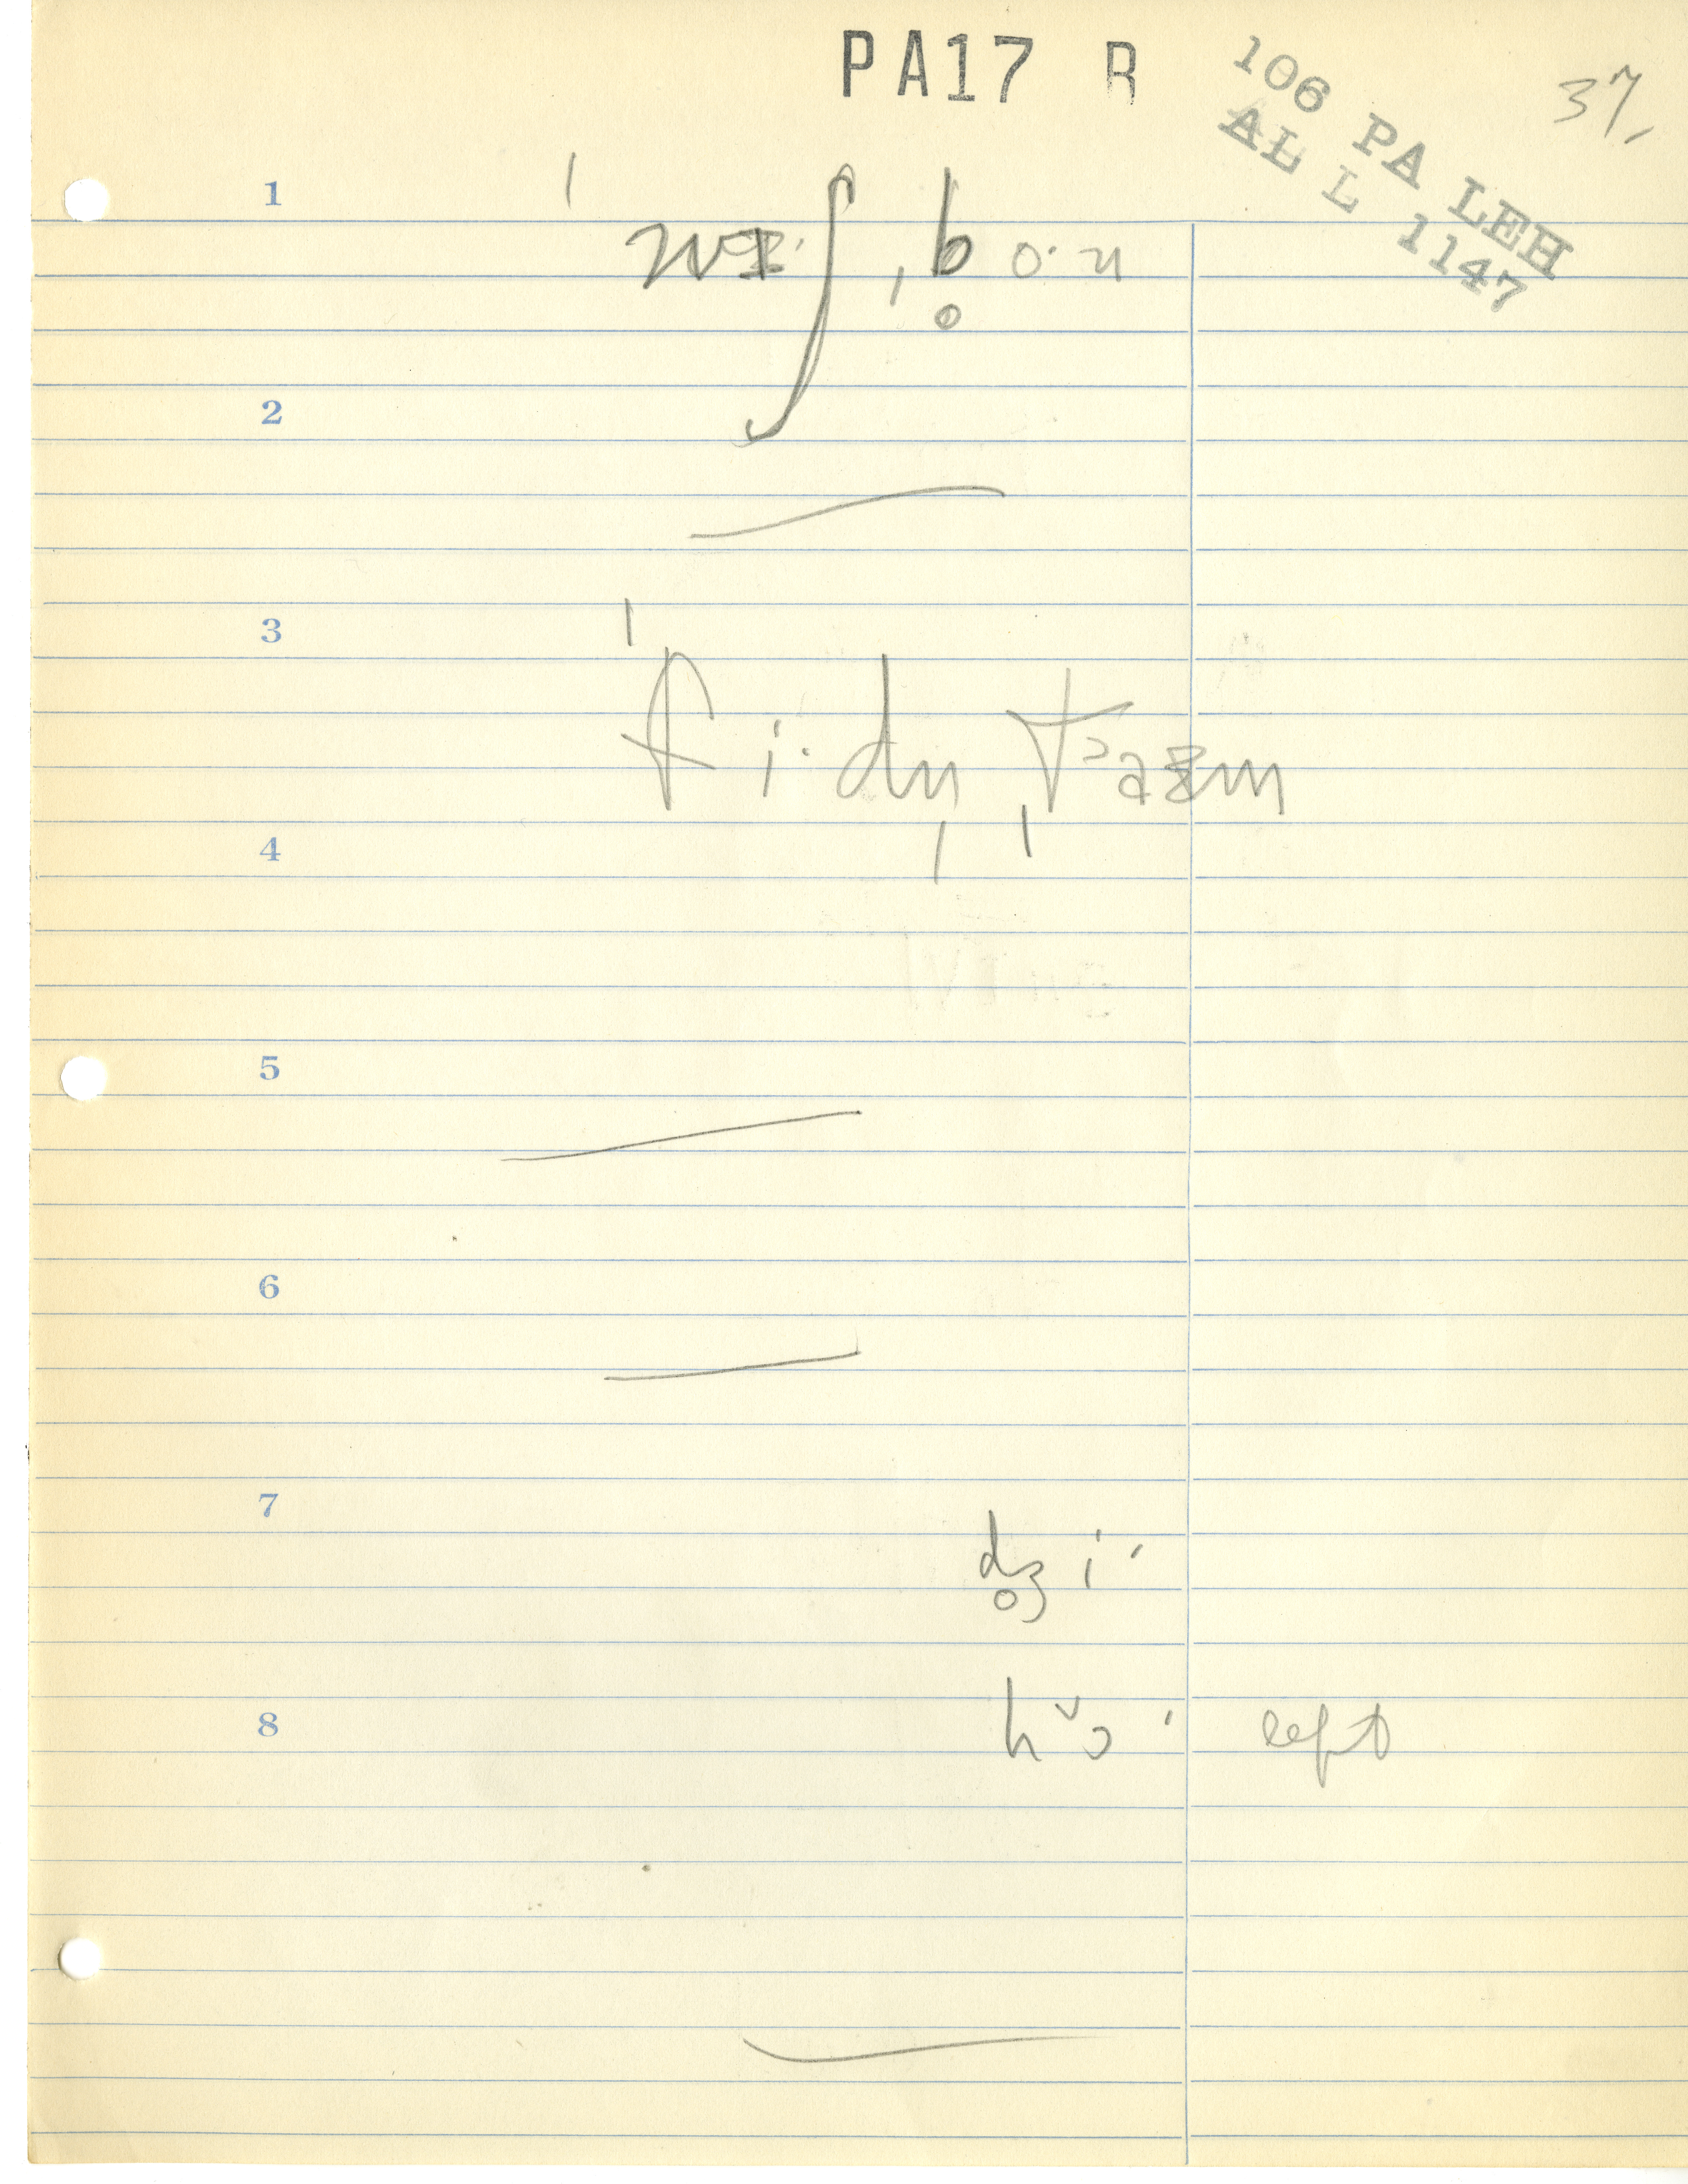 PA17 R
106 PA LEH
ALL 1147
37.
1
ˈwɪʃˌb̥oˑn
2
3
ˈfiˑdn̩ˌtaɪm
4
5
6
7
d̥ʒiˑ
8
hɔˑ left